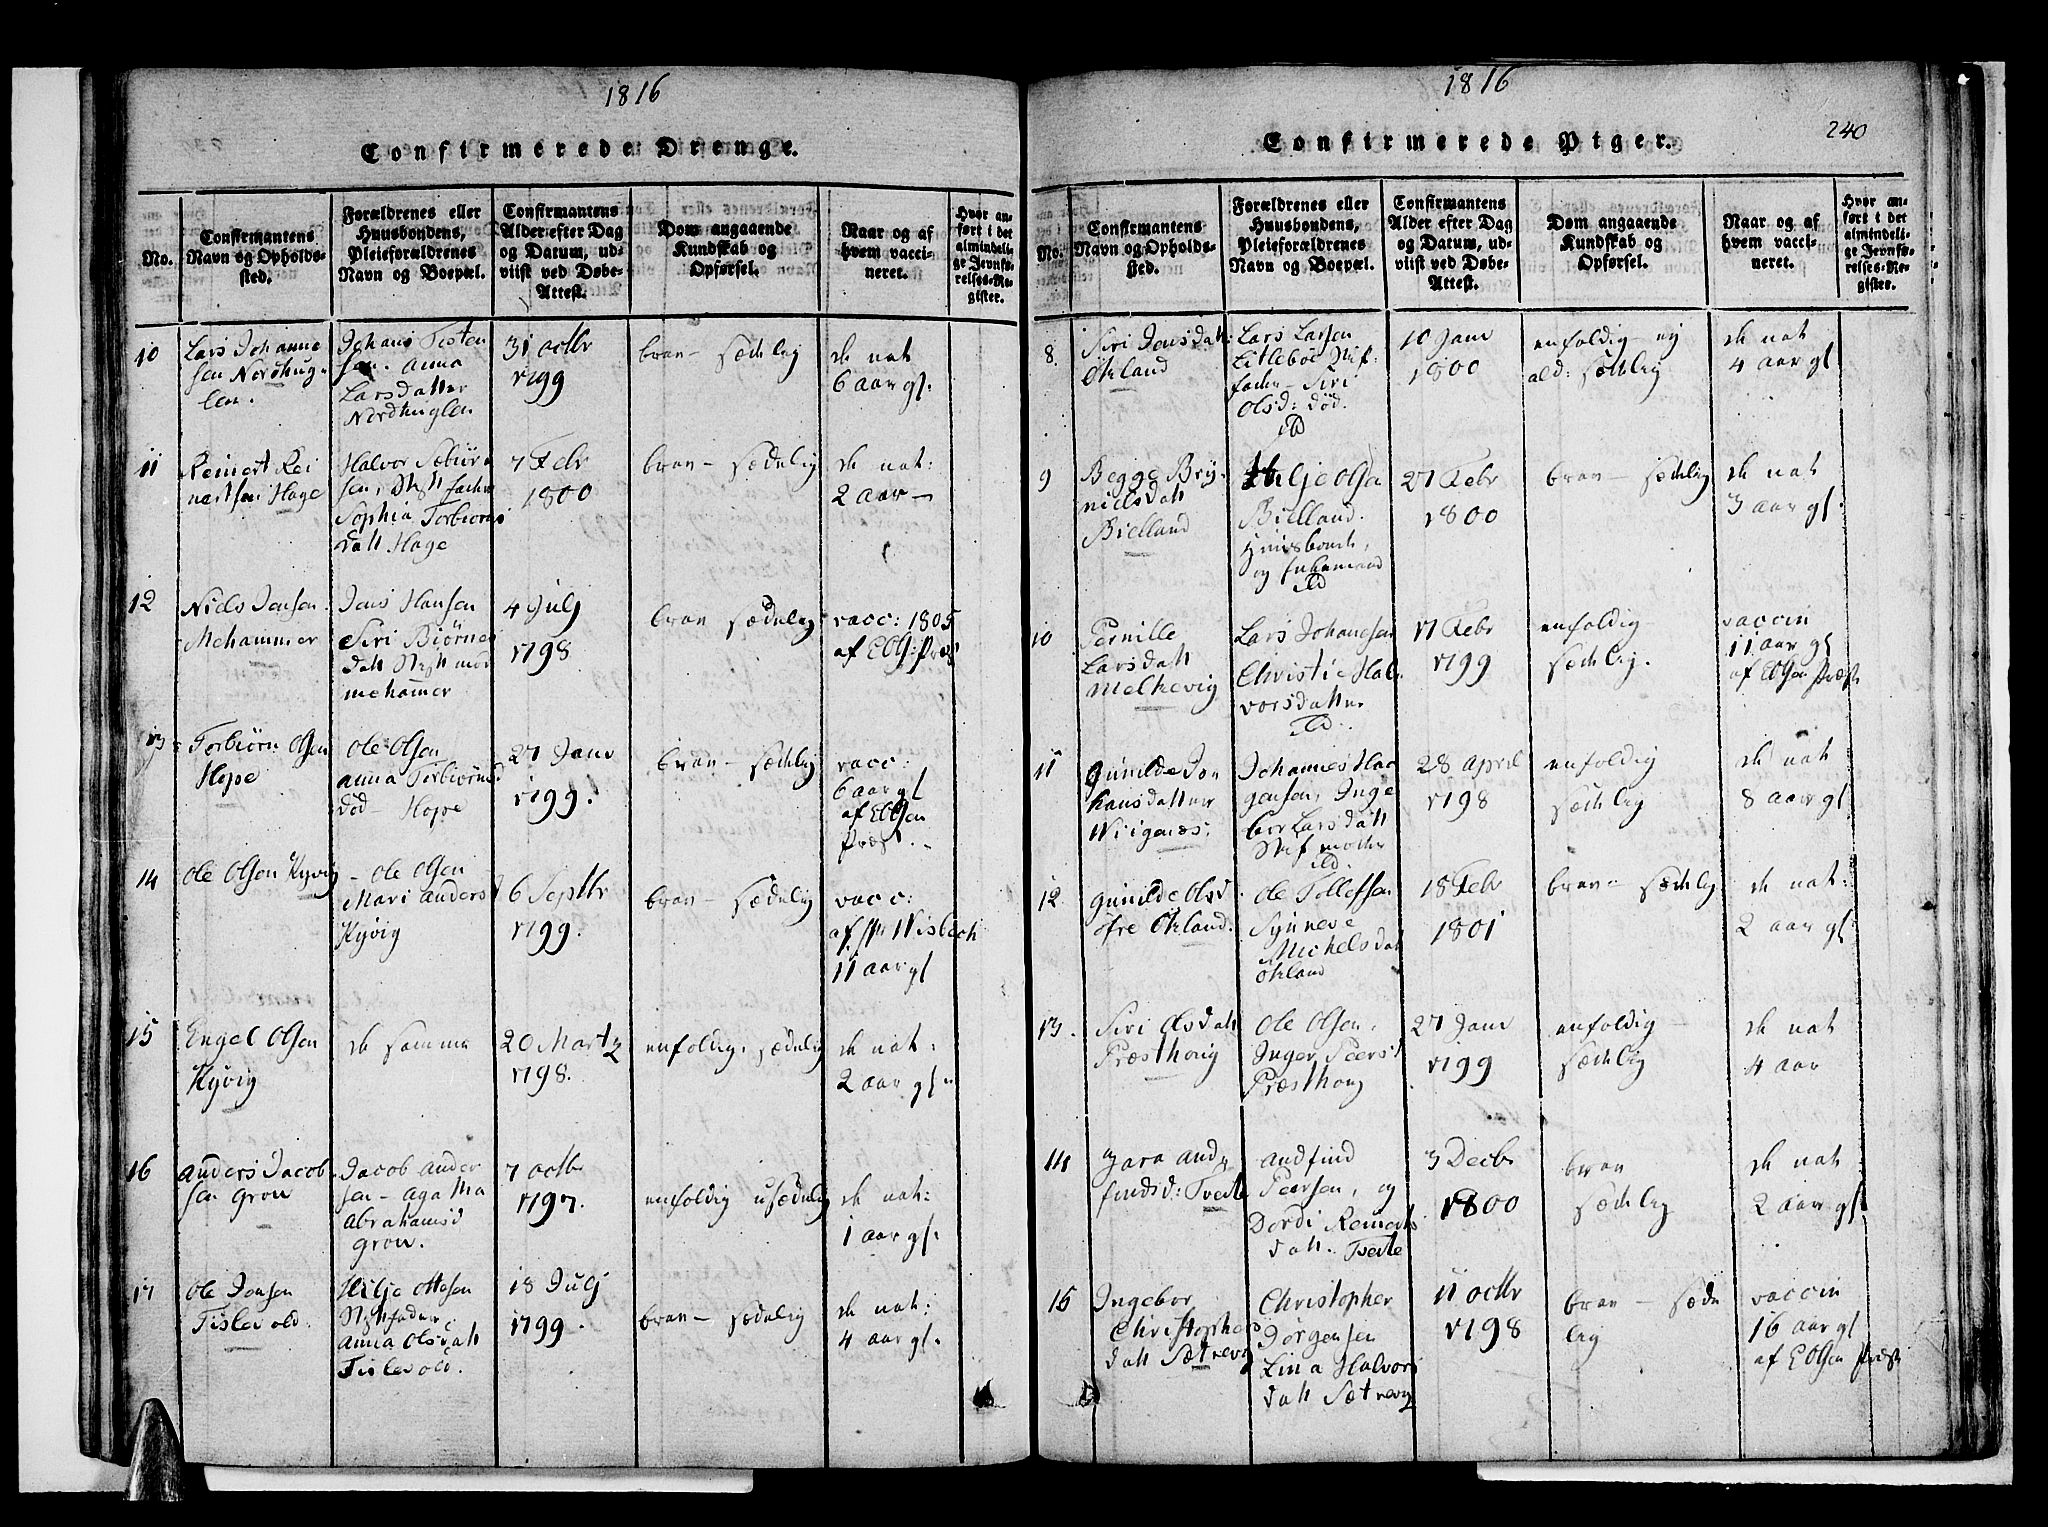 1816
Confirmerede Drenge.
No.
Confirmantens
Navn og Opholds-
sted.
Forældrenes eller
Huusbondens,
Pleieforældrenes
Navn og Boepæl.
Confirmantens
Alder efter Dag
og Datum, ud-
viist ved Døbe-
Attest.
Dom angaaende
Kundskab og
Opførsel.
Naar og af
hvem vacci-
neret.
Hvor an-
ført i det
almindeli-
ge Jevnfø-
relses-Re-
gister.
10
Lars Johanne
sen Nordhug-
len.
Johans Tisten
sen. Anna
Larsdatter
Nordhuglen
31 octbr
1799
brav - sædelig
de nat
6 aar gl.
11
Reinert Rei
nertsen Hage
Halvor
Sophia Torbiørns
datt Hage
7 Febr
1800
brav - sædelig
de nat:
2 aar -
12
Niels Jensen
Mehammer
Jens Hansen
Siri Biørns
datt
mehamer
4 July
1798
brav sædelig
vacc: 1805
af EOls: Præst
13
Torbiørn Olsen
Hope
Ole Olsen
anna Torbiørnsd
død - Hope
27 Janr
1799.
brav - sædelig
vacc:
6 aar gl
af E Olsen
Præst.
14
Ole Olsen Kyvig
- Ole Olsen
Mari Anders
Kyvig
6 Septbr
1799.
brav - sædelig
vacc:
af Wisbech
11 aar gl
15
Engel Olsen
Kyvig
de samme
20 Martz
1798.
enfoldig, sædelig
de nat:
2 aar gl
16
Anders Jacob
sen Grov
Jacob Ander
sen - Aga Ma
Abrahamsd
Grov.
7 octb
1797.
enfoldig usædelig
de nat:
1 aar gl.
17
Ole Jensen
Tislevold.
Hilje Ottesen
Anna Olsdatt
Tislevold.
18 July
1799.
brav - sædelig
de nat:
4 aar gl.
1816
240
Confirmerede Piger.
No.
Confirmantens
Navn og Opholds-
sted.
Forældrenes eller
Huusbondens,
Pleieforældrenes
Navn og Boepæl.
Confirmantens
Alder efter Dag
og Datum, ud-
viist ved Døbe-
Attest.
Dom angaaende
Kundskab og
Opførsel.
Naar og af
hvem vacci-
neret.
Hvor an-
ført i det
almindeli-
ge Jevnfø-
relses-Re-
gister.
8
Siri Jensdatt
Økland
Lars Larsen
Litleboe Stif-
fader - Siri
Olsd: død.
10 Janr
1800
enfoldig - og
ald: sædelig
de nat
4 aar gl
9
Begge Bry-
nielsdatt
Bielland
Hilje Olsen
Bielland.
Huusbonde,
og
27 Febr
1800
brav - sædelig
de nat:
3 aar gl.
10
Pernille
Larsdatt
Melkevig
Lars Johanesen
Christie Hal-
vorsdatter
17 Febr
1799
enfoldig
sædelig.
vaccin
11 aar gl
af E Olsen Præst
11
Gunilde Jo
hansdatter
Johannes Haa
gensen, Inge
bor Larsdatt
Stifmoder
28 April
1798
enfoldig
sædelig
de nat
8 aar gl
12
Gunilde Olsd
Øfre Økland.
Ole Tollefsen
Synneve
Michelsdatt
Økland
18 Febr
1801
brav - sædelig
de nat:
2 aar gl
13.
Siri Olsdatt
Præsthoug
Ole Olsen,
Inger Peersd
Præsthoug
27 Janr
1799
enfoldig -
sædelig
de nat
4 aar
14
Zara And-
findsd: Tveite
Andfind
Peersen, og
Dordi Reinerts
datt. Tveite
3 Decbr
1800
brav
sædelig
de nat
2 aar gl.
15
Ingebor
Christophers
datt Sætrevig
Christopher
Jørgensen
Zina Halvors
datt Sætrevig
11 octbr
1798
brav - sæde
lig
vaccin
16 aar gl
af E Olsen Præst